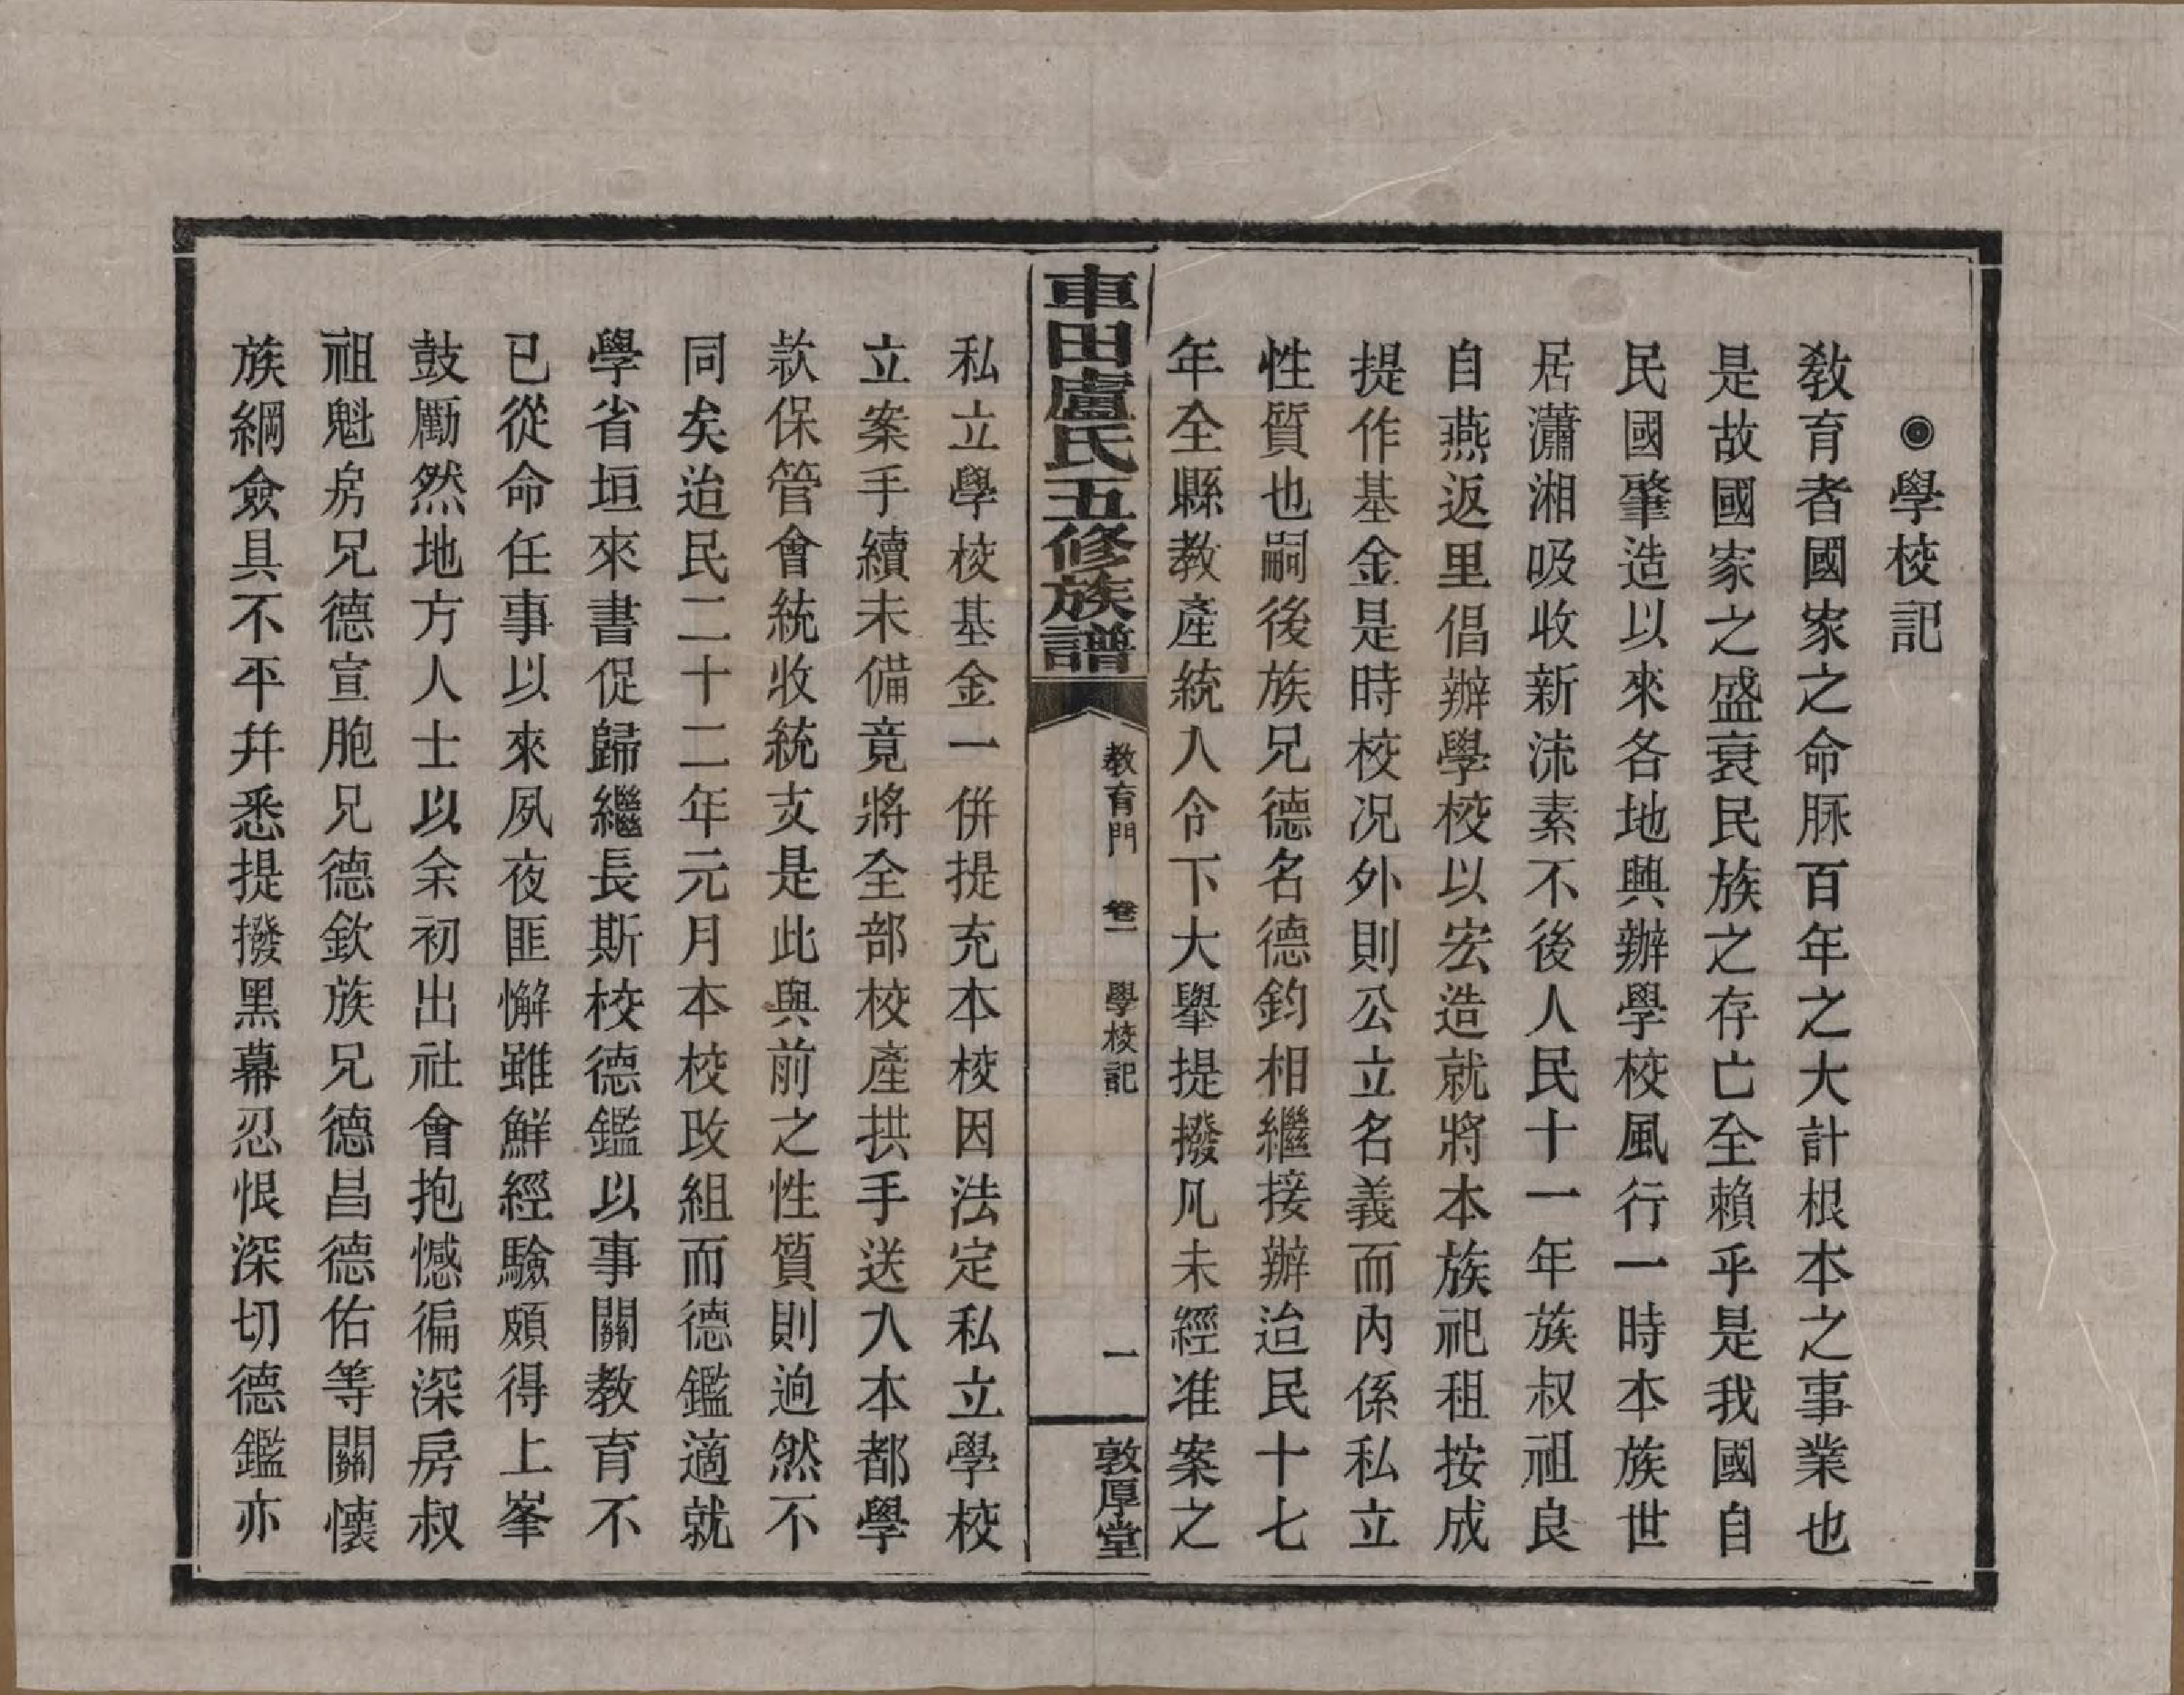 ◉學校記
教育者國家之命脉百年之大計根本之事業也
是故國家之盛衰民族之存亡全賴乎是我國自
民國肇造以來各地興辦學校風行一時本族世
居瀟湘吸收新流素不後人民十一年族叔祖良
自燕返里倡辦學校以宏造就將本族祀租按成
提作基金是時校況外則公立名義而內係私立
性質也嗣後族兄德名德鈞相繼接辦迨民十七
年全縣教產統入令下大舉提撥凡未經准案之
車田盧氏五修族譜
教育門 卷一 學校記
一
敦厚堂
私立學校基金一併提充本校因法定私立學校
立案手續未備竟將全部校產拱手送入本都學
款保管會統收統支是此與前之性質則逈然不
同矣迨民二十二年元月本校改組而德鑑適就
學省垣來書促歸繼長斯校德鑑以事關教育不
已從命任事以來夙夜匪懈雖鮮經驗頗得上峯
鼓勵然地方人士以余初出社會抱憾徧深房叔
祖魁房兄德宣胞兄德欽族兄德昌德佑等關懷
族綱僉具不平幷悉提撥黑幕忍恨深切德鑑亦